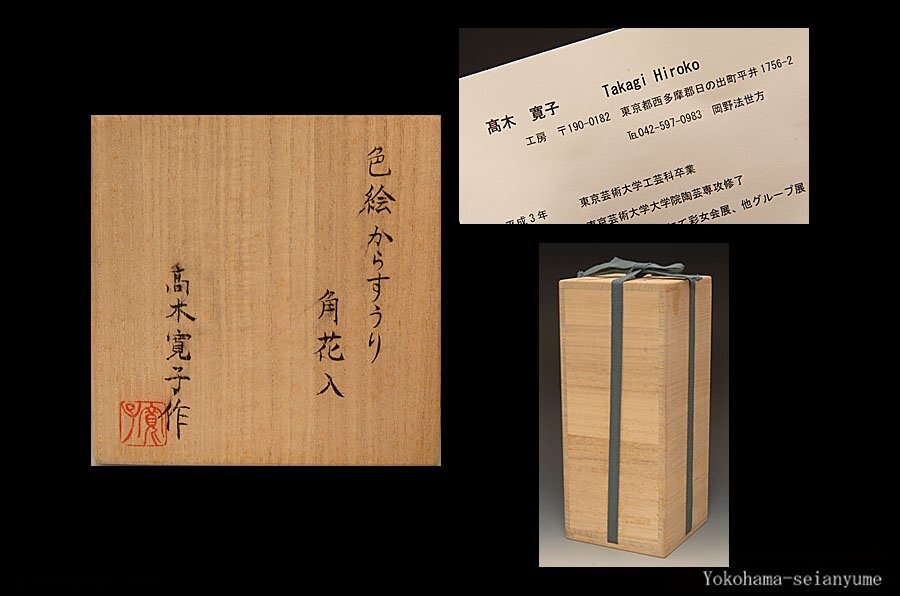 色絵 からすうり
角花入
高木寛子作
寛子
髙木 寛子 Takagi Hiroko
工房 〒190-0182 東京都西多摩郡日の出町平井1756-2
℡042-597-0983 岡野法世方
東京芸術大学工芸科卒業
平成3年 東京芸術大学大学院陶芸専攻修了
て彩女会展、他グループ展
Yokohama-seianyume